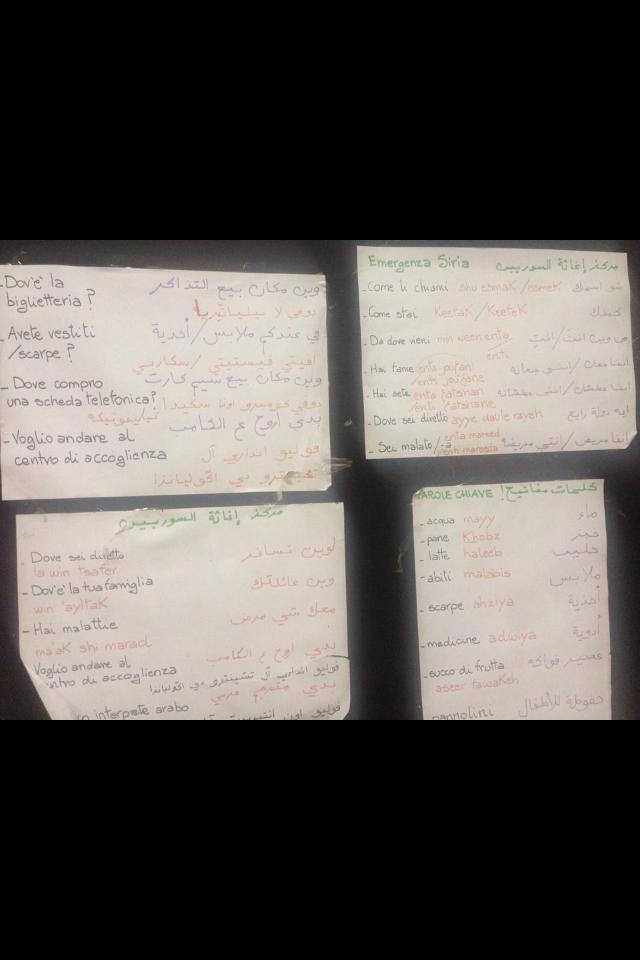 Dov'è la
biglietteria?
وين مكان بيع التذاكر
دوفي لا بيلياتيريا
- Avete vestiti
/scarpe?
في عندكم ملابس/أحذية
افيتي فيستيتي/سكاربي
- Dove compro
una scheda telefonica?
وين مكان بيع سيم كارت
دوفي كومبرو اونا سكيدا
تيليفونيكه
- Voglio andare al
centro di accoglienza
بدي أروح ع الكامب
فوليو انداري آل
Emergenza Siria مركز إغاثة السوريين
- Come ti chiami shu esmak/esmek شو اسمك
- Come stai Keefak/Keefek كيفك
- Da dove vieni min ween enta/ من وين انتَ/انتِ
enti
- Hai fame enta joufan/
enti joufane
- Hai sete enta fatshan
/enti fatshane
- Dove sei diretto ayye dawle rayeh ايه دولة رايح
- Sei malato/-a enta mareed
/enti mareeda انتا مريض/انتي مريضة
مركز إغاثة السوريين
- Dove sei diretto لوين تسافر
la win tsafer
- Dov'è la tua famiglia وين عائلتك
win 'ayltak
- Hai malattie معك شي مرض
ma'ak shi marad
Voglio andare al بدي اروح ع الكامب
centro di accoglienza
فوليو انداري آل تشينترو دي اكوليانزا
interprete arabo بدي مترجم عربي
PAROLE CHIAVE كلمات مفاتيح!
- acqua mayy ماء
- pane Khobz خبز
- latte haleeb حليب
- abiti malabis ملابس
- scarpe ahziya أحذية
- medicine adwiya أدوية
- succo di frutta عصير فواكه
aseer fawakeh
pannolini